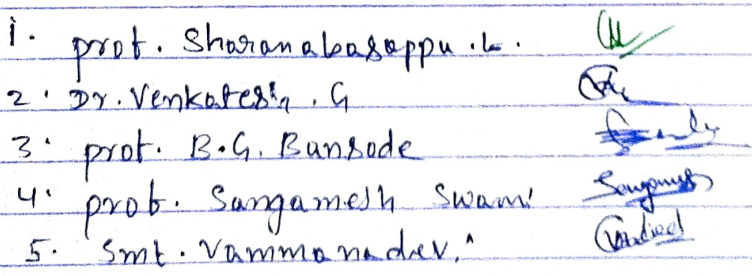 1. prof. Sharanabasappa .L.
2. Dr. Venkatesh . G
3. prof. B.G. Bansode
4. prof. Sangamesh Swami
5. Smt.